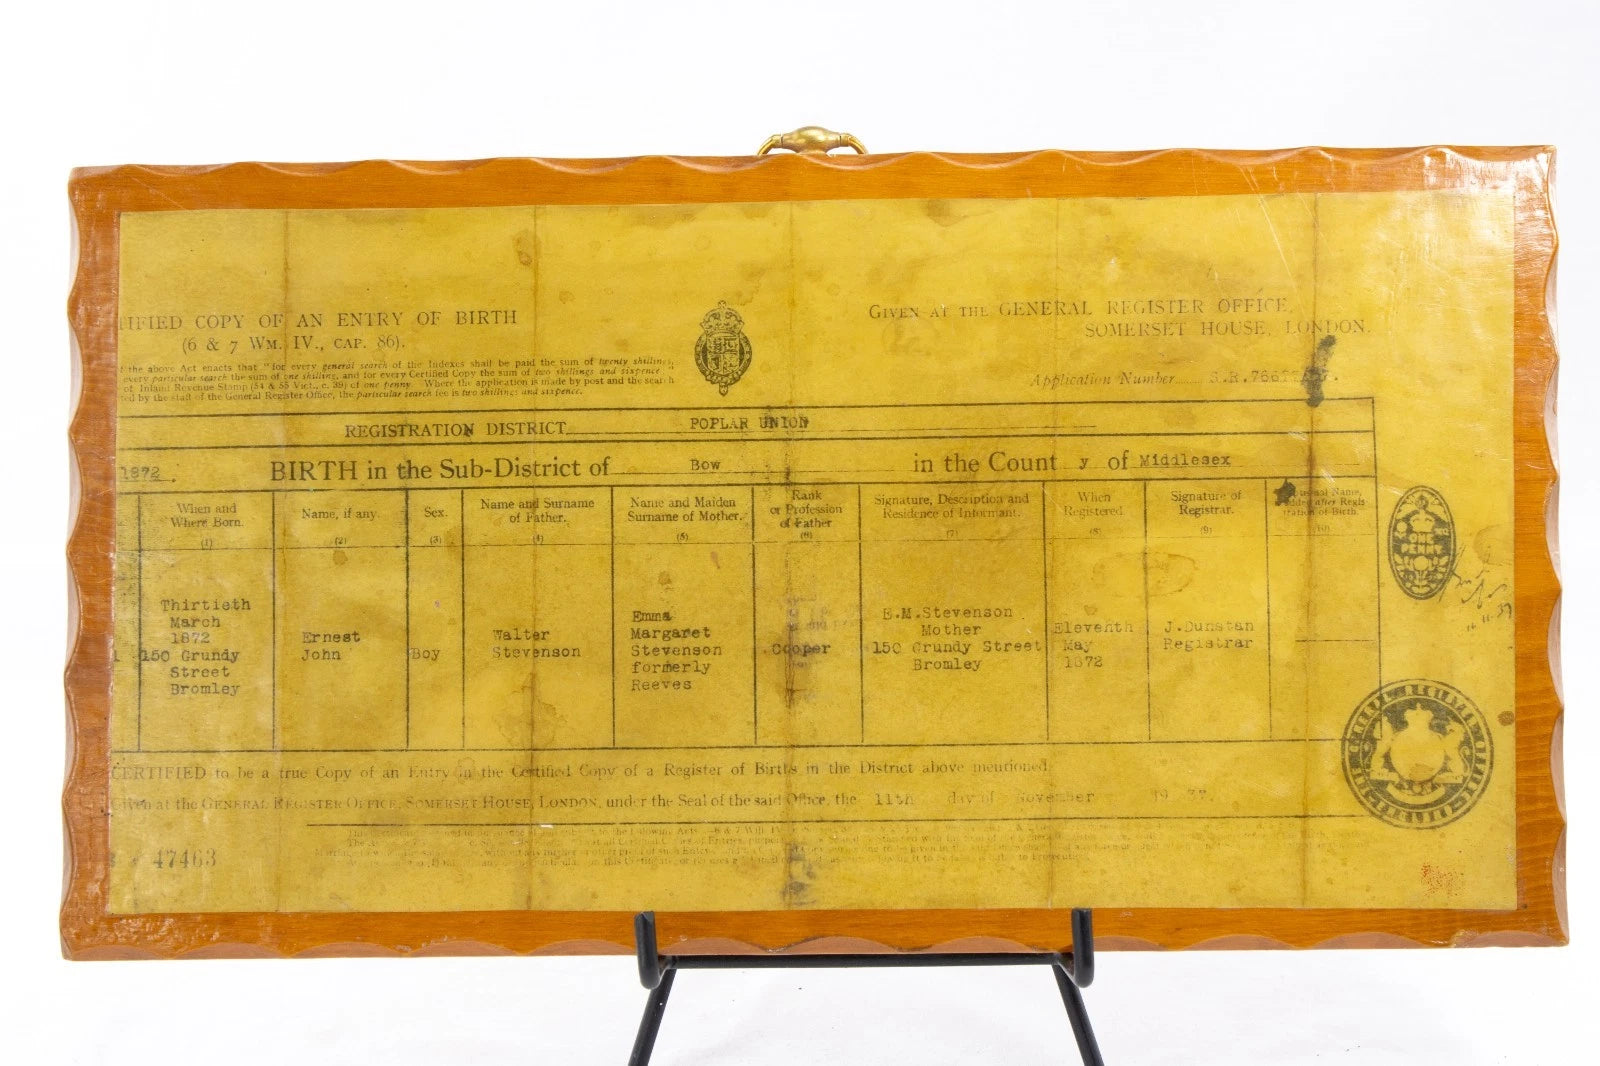 TIFIED COPY OF AN ENTRY OF BIRTH
(6 & 7 WM. IV., CAP. 86).
the above Act enacts that "for every general search of the Indexes shall be paid the sum of twenty shillings,
every particular search the sum of one shilling, and for every Certified Copy the sum of two shillings and sixpence."
of Inland Revenue Stamp (54 & 55 Vict., c. 39) of one penny. Where the application is made by post and the search
ted by the staff of the General Register Office, the particular search fee is two shillings and sixpence.
GIVEN AT THE GENERAL REGISTER OFFICE,
SOMERSET HOUSE, LONDON.
Application Number S.R.
REGISTRATION DISTRICT POPLAR UNION
1872. BIRTH in the Sub-District of Bow in the County of Middlesex
When and Where Born. (1)
Name, if any. (2)
Sex. (3)
Name and Surname of Father. (4)
Name and Maiden Surname of Mother. (5)
Rank or Profession of Father (6)
Signature, Description and Residence of Informant. (7)
When Registered (8)
Signature of Registrar. (9)
Name, added after Registration of Birth. (10)
Thirtieth
March
1872
150 Grundy
Street
Bromley
Ernest
John
Boy
Walter
Stevenson
Emma
Margaret
Stevenson
formerly
Reeves
Cooper
E.M.Stevenson
Mother
150 Grundy Street
Bromley
Eleventh
May
1872
J.Dunstan
Registrar
ONE PENNY
CERTIFIED to be a true Copy of an Entry in the Certified Copy of a Register of Births in the District above mentioned
Given at the GENERAL REGISTER OFFICE, SOMERSET HOUSE, LONDON, under the Seal of the said Office, the 11th day of November 19 37.
47463